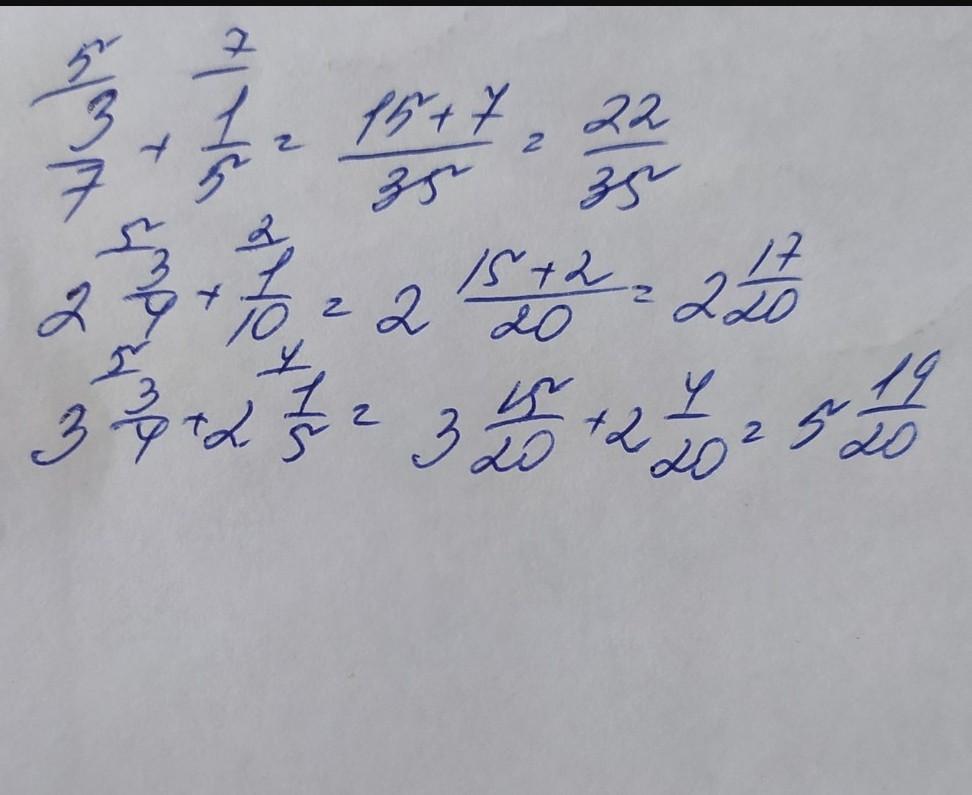 5/ 3/7 + 7/ 1/5 = (15+7)/35 = 22/35
2 5/ 3/4 + 2/ 1/10 = 2 (15+2)/20 = 2 17/20
3 5/ 3/4 + 2 4/ 1/5 = 3 15/20 + 2 4/20 = 5 19/20